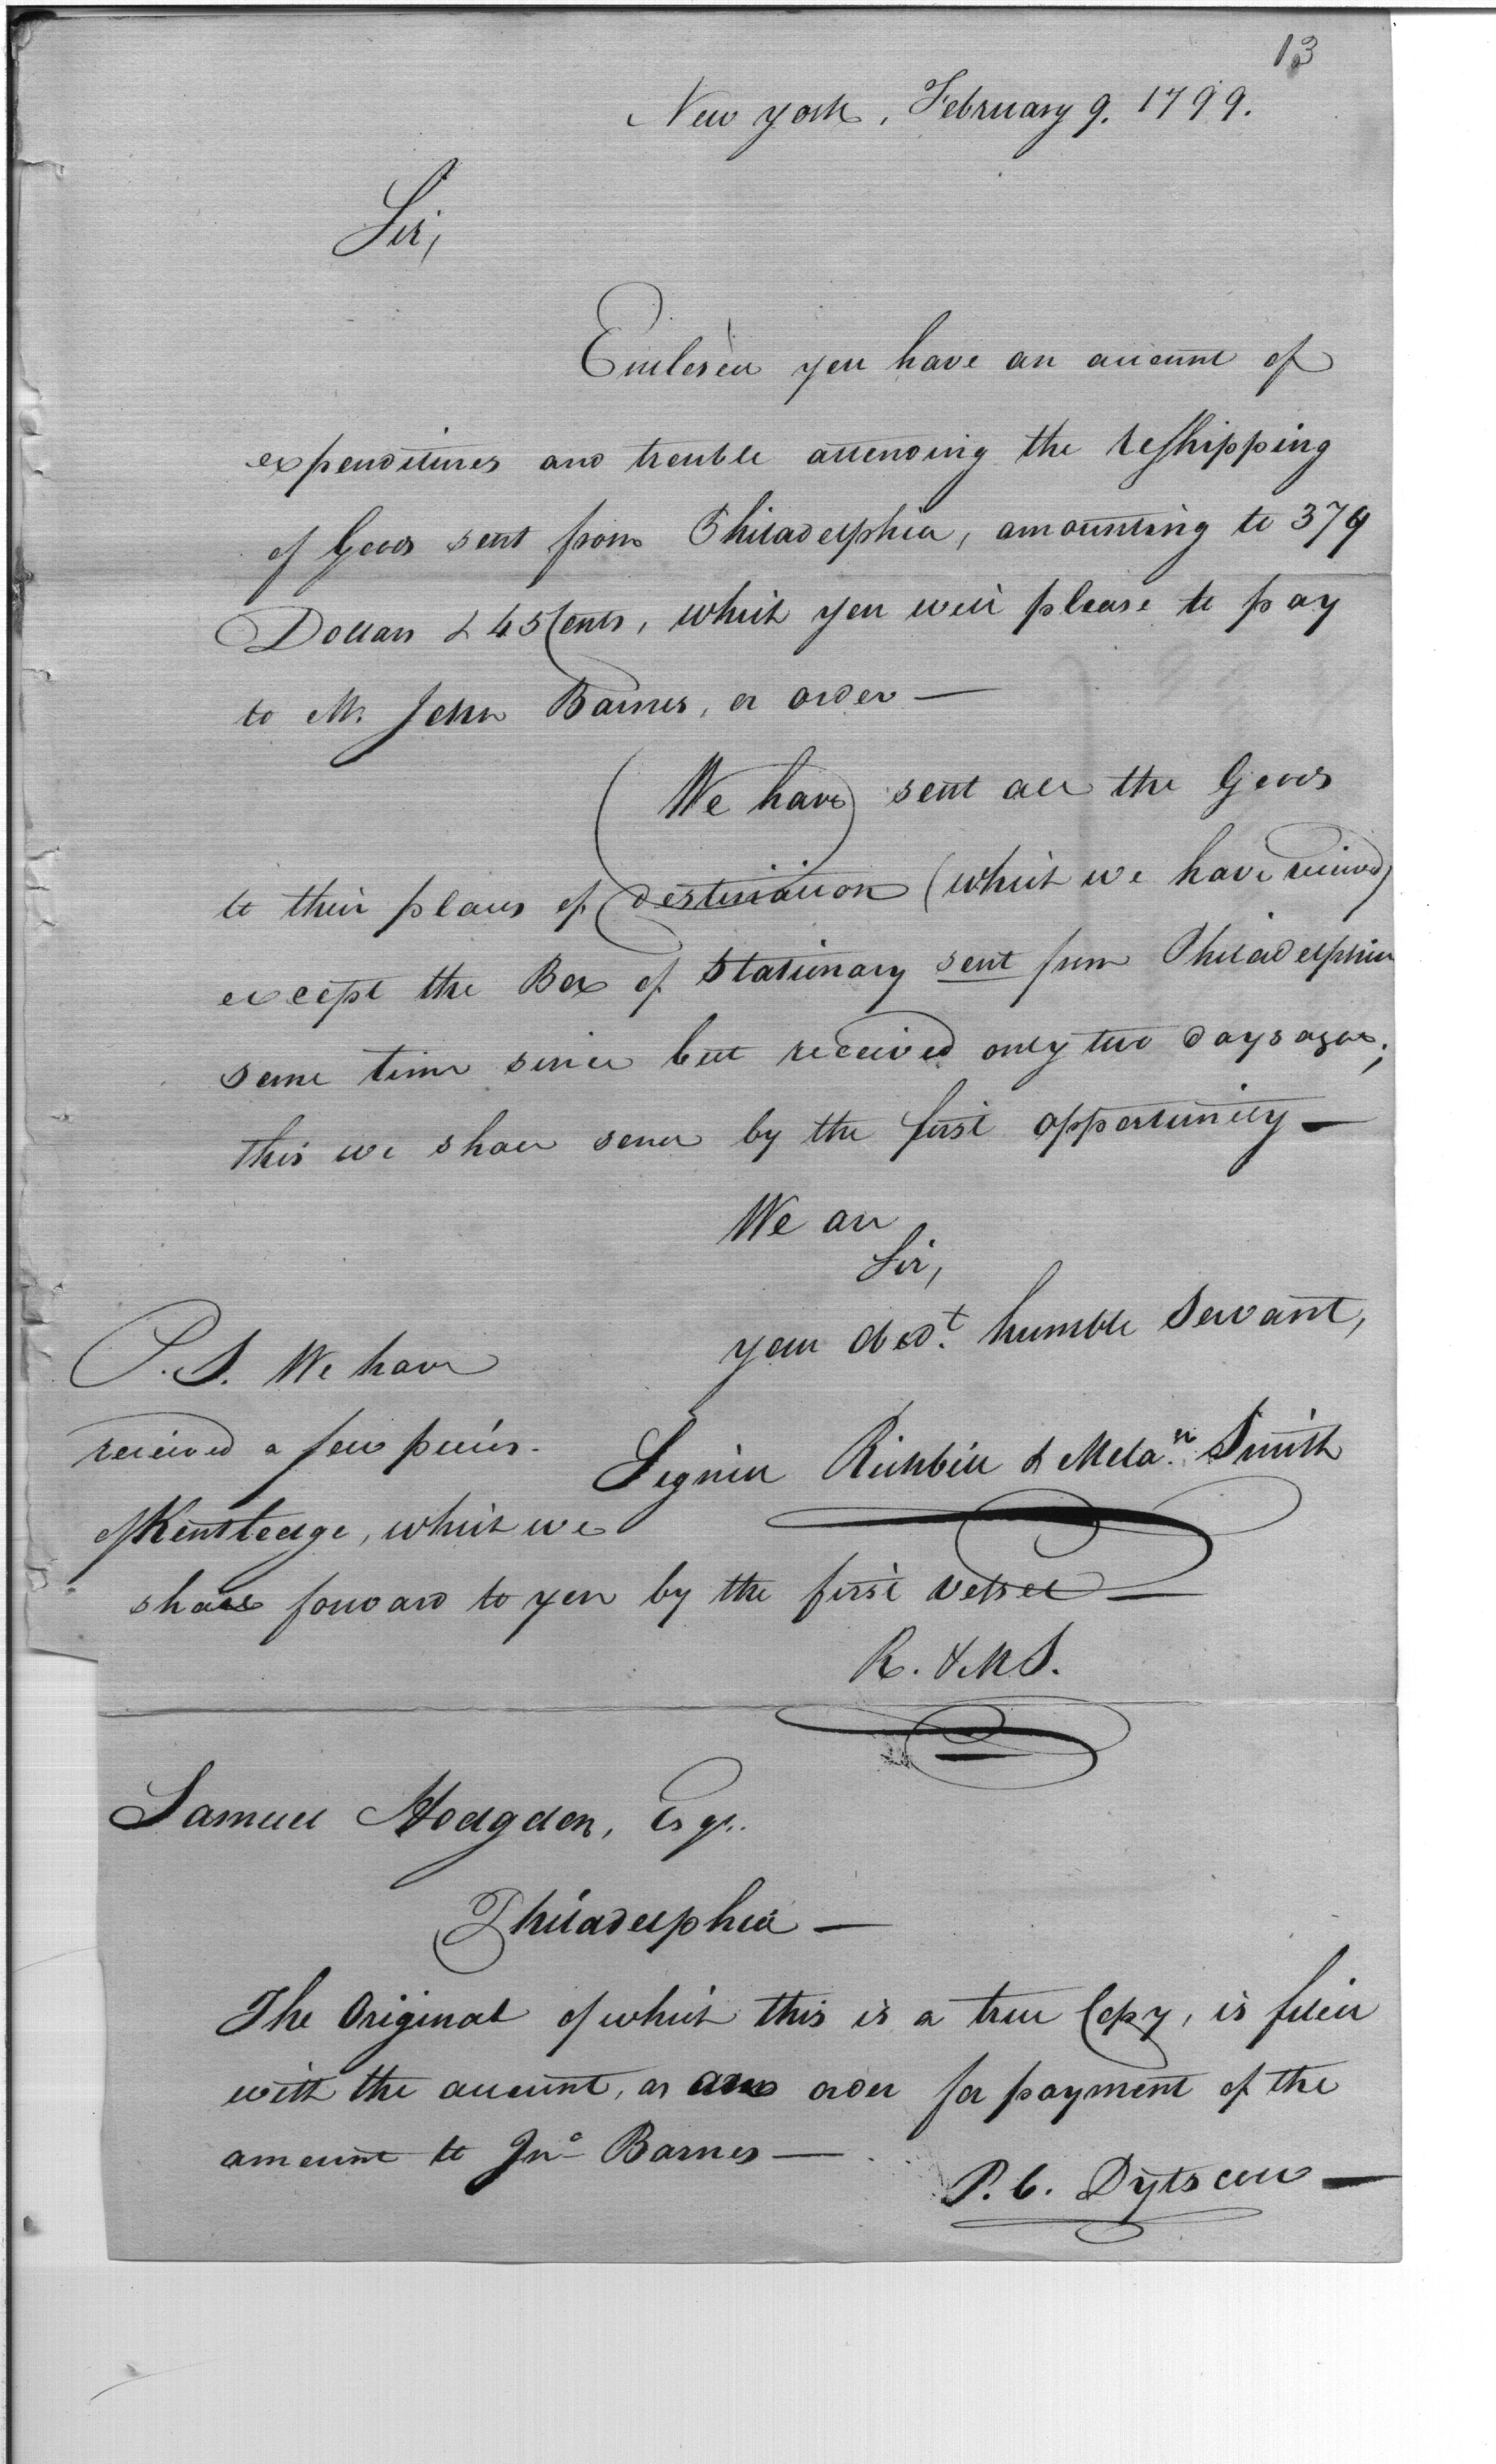 13
New York, February 9. 1799.
Sir,
Enclosed you have an account of
expenditures and trouble attending the reshipping
of Goods sent from Philadelphia, amounting to 379
Dollars & 45 Cents, which you will please to pay
to Mr. John Barnes, or order —
We have sent all the Goods
to their places of destination (which we have received)
except the Box of Stationary sent from Philadelphia
some time since but received only two days ago;
this we shall send by the first opportunity —
We are
Sir,
your obedt. humble Servant,
Signed Richbill & Melan. Smith
P.S. We have
received a few pieces
of Kentledge, which we
shall forward to you by the first vessel —
R. & M S.
Samuel Hodgdon, Esqr.
Philadelphia —
The Original of which this is a true Copy, is filed
with the account, as an order for payment of the
amount to Jno Barnes —
P. C.